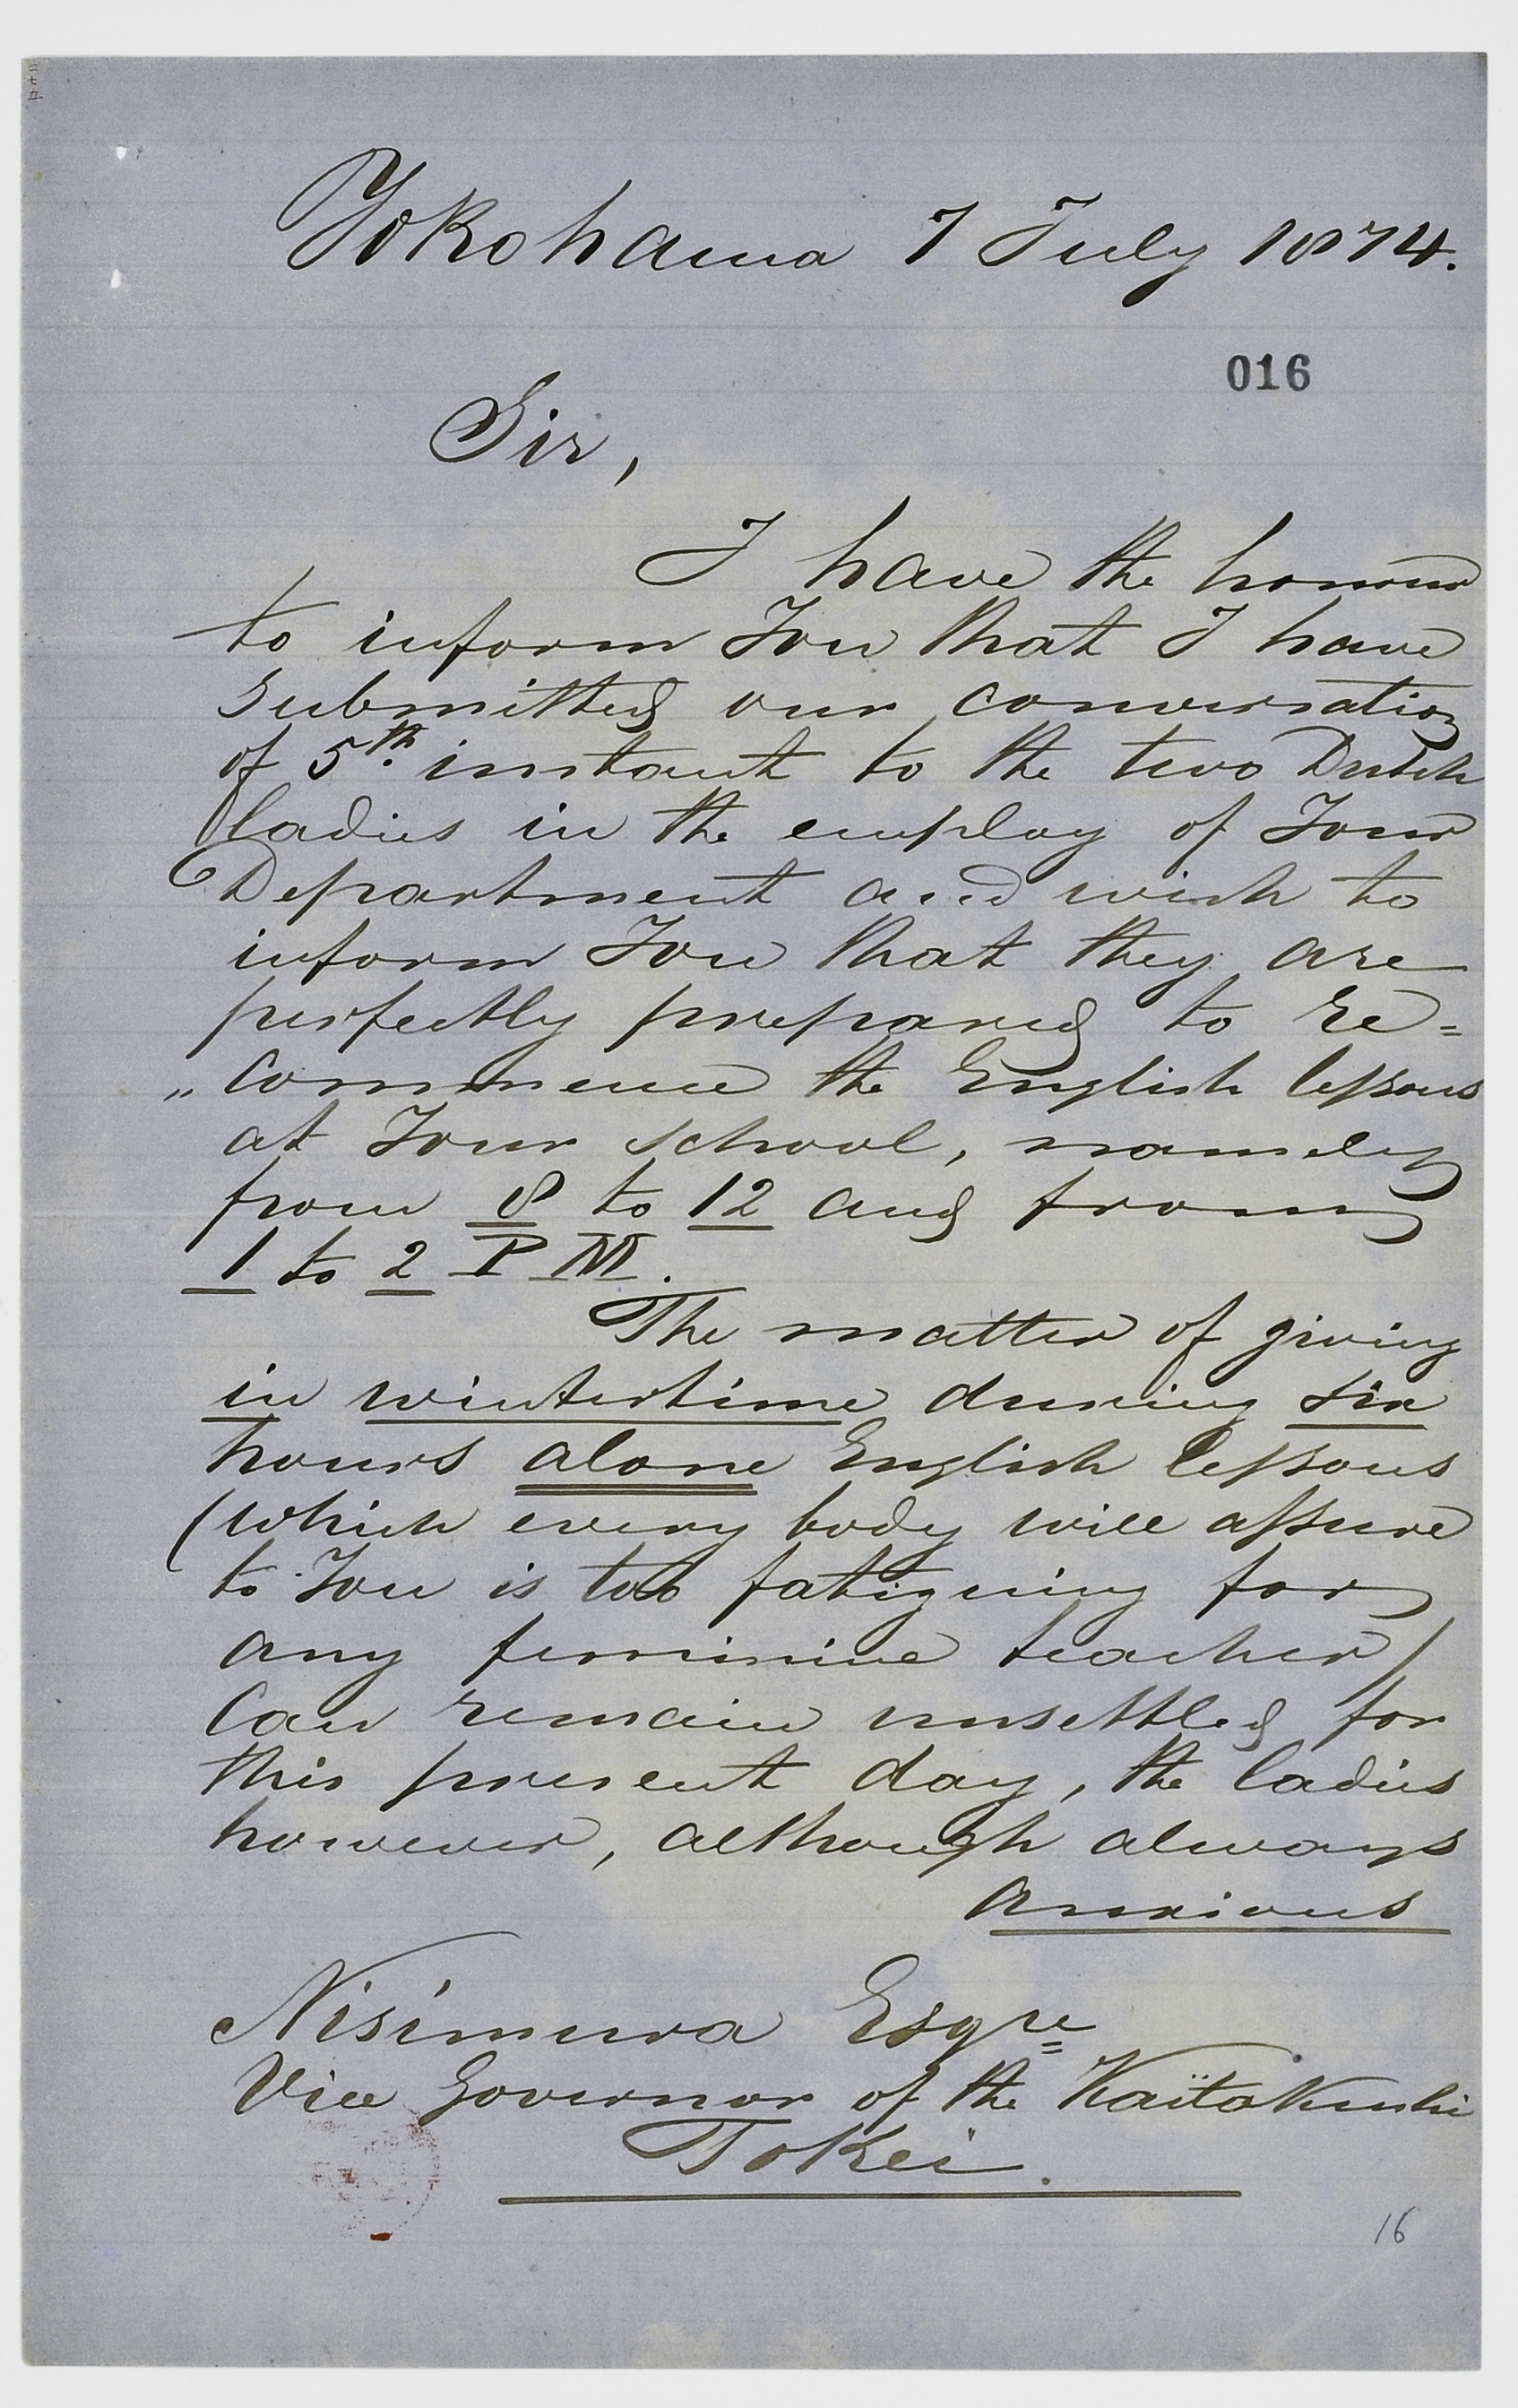 Yokohama 7 July 1874.
016
Sir,
I have the honour
to inform You that I have
submitted our conversation
of 5th. instant to the two Dutch
ladies in the employ of Your
Department and wish to
inform You that they are
perfectly prepared to re=
„commence the English lessons
at Your school, namely
from 8 to 12 and from
1 to 2 P M.
The matter of giving
in wintertime during six
hours alone English lessons
(which every body will assure
to You is too fatiguing for
any feminine teacher)
Can remain unsettled for
this present day, the ladies
however, although always
anxious
Nisimura Esqre
Vice Governor of the Kaïtakushi
Tokei.
16